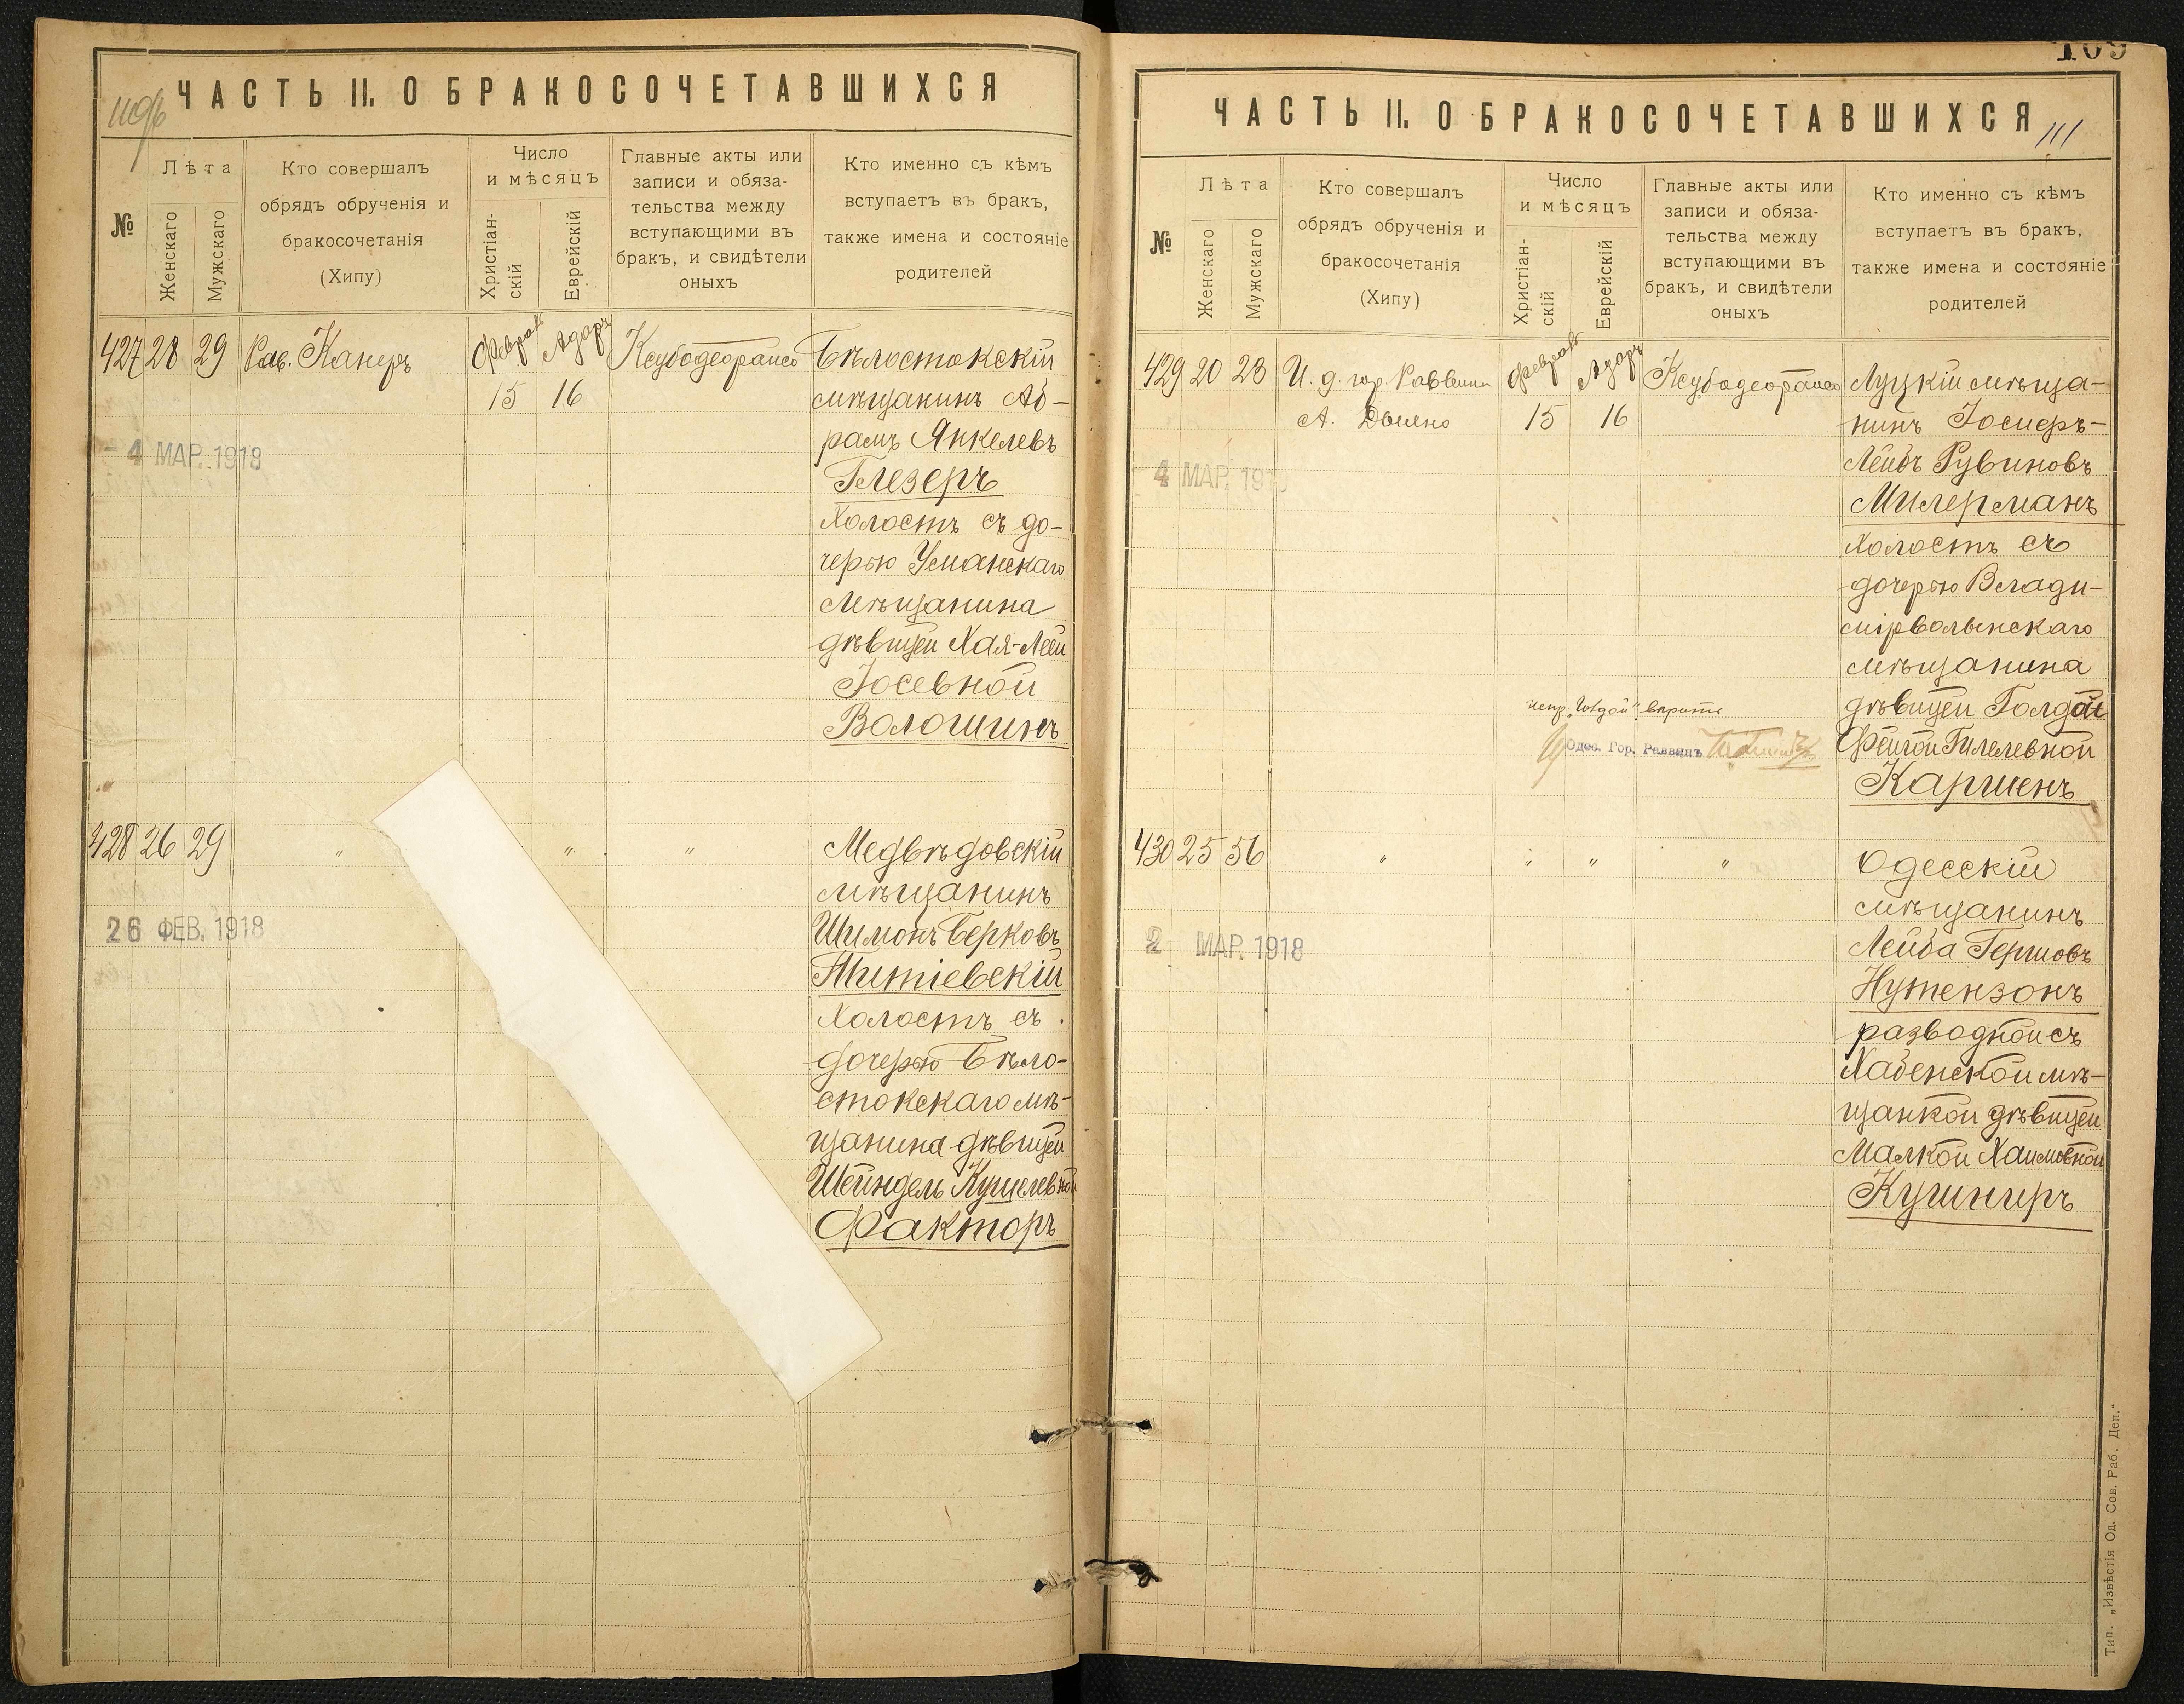 ЧАСТЬ II. О БРАКОСОЧЕТАВШИХСЯ
№
Лѣта
Женскаго
Мужскаго
Кто совершалъ
обрядъ обрученія и
бракосочетанія
(Хипу)
Число
и мѣсяцъ
Христіан-
скій
Еврейскій
Главные акты или
записи и обяза-
тельства между
вступающими въ
бракъ, и свидѣтели
оныхъ
Кто именно съ кѣмъ
вступаетъ въ бракъ,
также имена и состояніе
родителей
427 28 29 Рав. Канеръ
Феврал 15
Адаръ 16
Бѣлостокскій
мѣщанинъ Аб-
рамъ Янкелевъ
Глезеръ
холостъ съ до-
черью Уманскаго
мѣщанина
дѣвицей Хая-Леей
Іосевной
Волошинъ
4 МАР. 1918
428 26 29 " " "
Медвѣдовскій
мѣщанинъ
Шимонъ Берковъ
Титіевскій
холостъ съ
дочерью Бѣло-
стокскаго мѣ-
щанина дѣвицей
Шейндель Кушелевной
Факторъ
26 ФЕВ. 1918
109
ЧАСТЬ II. О БРАКОСОЧЕТАВШИХСЯ
111
№
Лѣта
Женскаго
Мужскаго
Кто совершалъ
обрядъ обрученія и
бракосочетанія
(Хипу)
Число
и мѣсяцъ
Христіан-
скій
Еврейскій
Главные акты или
записи и обяза-
тельства между
вступающими въ
бракъ, и свидѣтели
оныхъ
Кто именно съ кѣмъ
вступаетъ въ бракъ,
также имена и состояніе
родителей
429 20 23 И. д. гор. Раввина
А.
Феврал 15
Адаръ 16
Луцкій мѣща-
нинъ Іосифъ-
Лейбъ Рувиновъ
Милерманъ
холостъ съ
дочерью Влади-
мірволынскаго
мѣщанина
дѣвицей Голдой
Фейгой Гилелевной
Каршенъ
4 МАР. 191
испр. „Голдой" вѣрить
Одес. Гор. Раввинъ
430 25 56 " " " "
Одесскій
мѣщанинъ
Лейба Гершовъ
Нутензонъ
разводной съ
Хабенской мѣ-
щанкой дѣвицей
Малкой Хаимовной
Кушниръ
2 МАР. 1918
Тип. „Извѣстія Од. Сов. Раб. Деп."